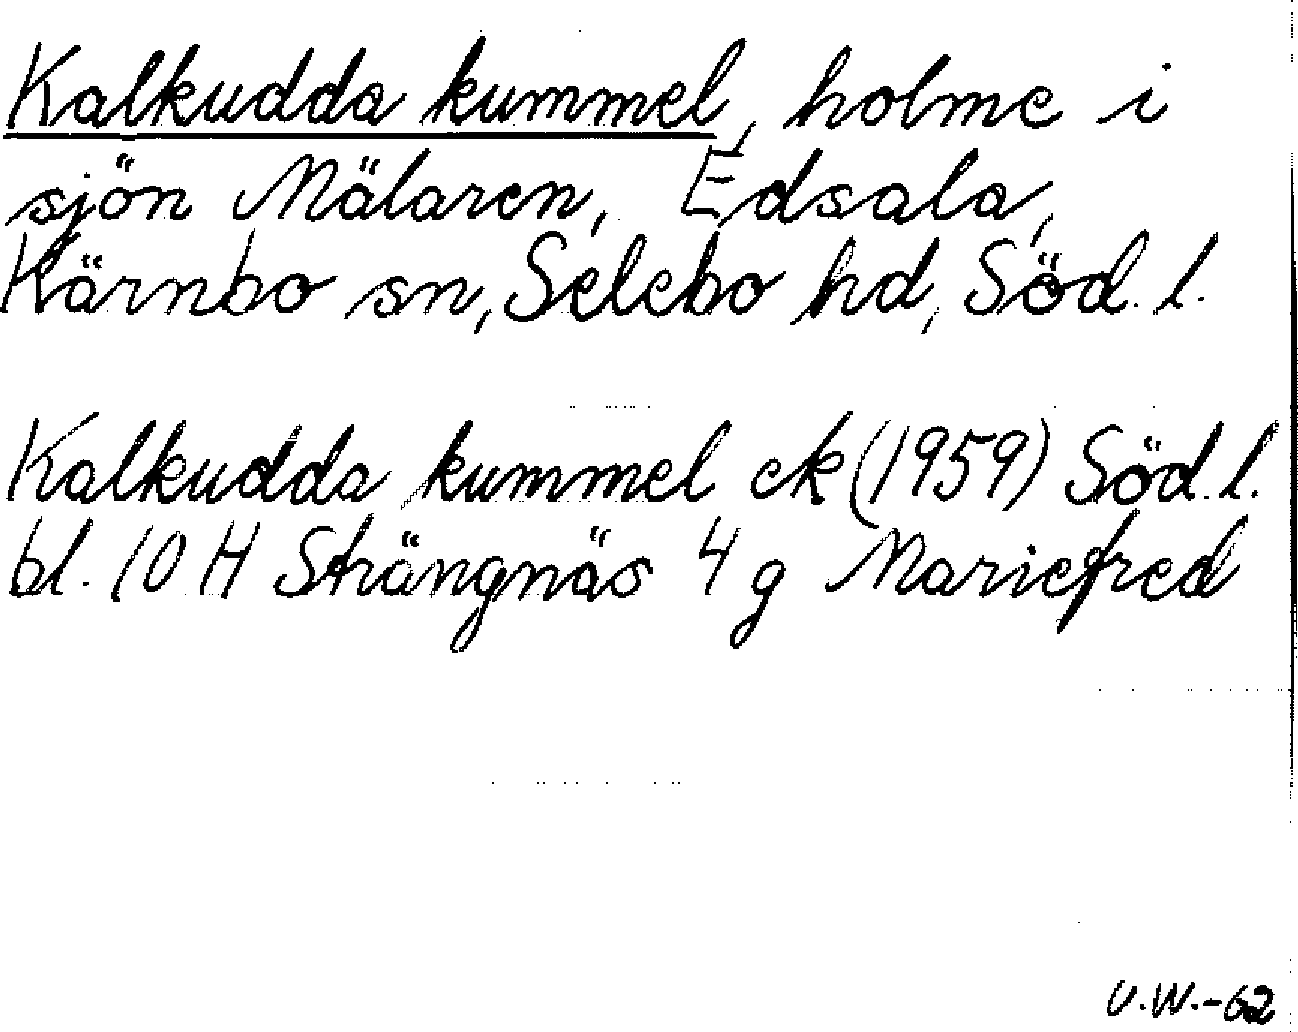 Kalkudda kummel, holme i
sjön Mälaren, Edsala,
Kärnbo sn, Selebo hd, Söd. l.
Kalkudda kummel ek (1959) Söd. l.
bl. 10 H Strängnäs 4 g Mariefred
U.W.-62